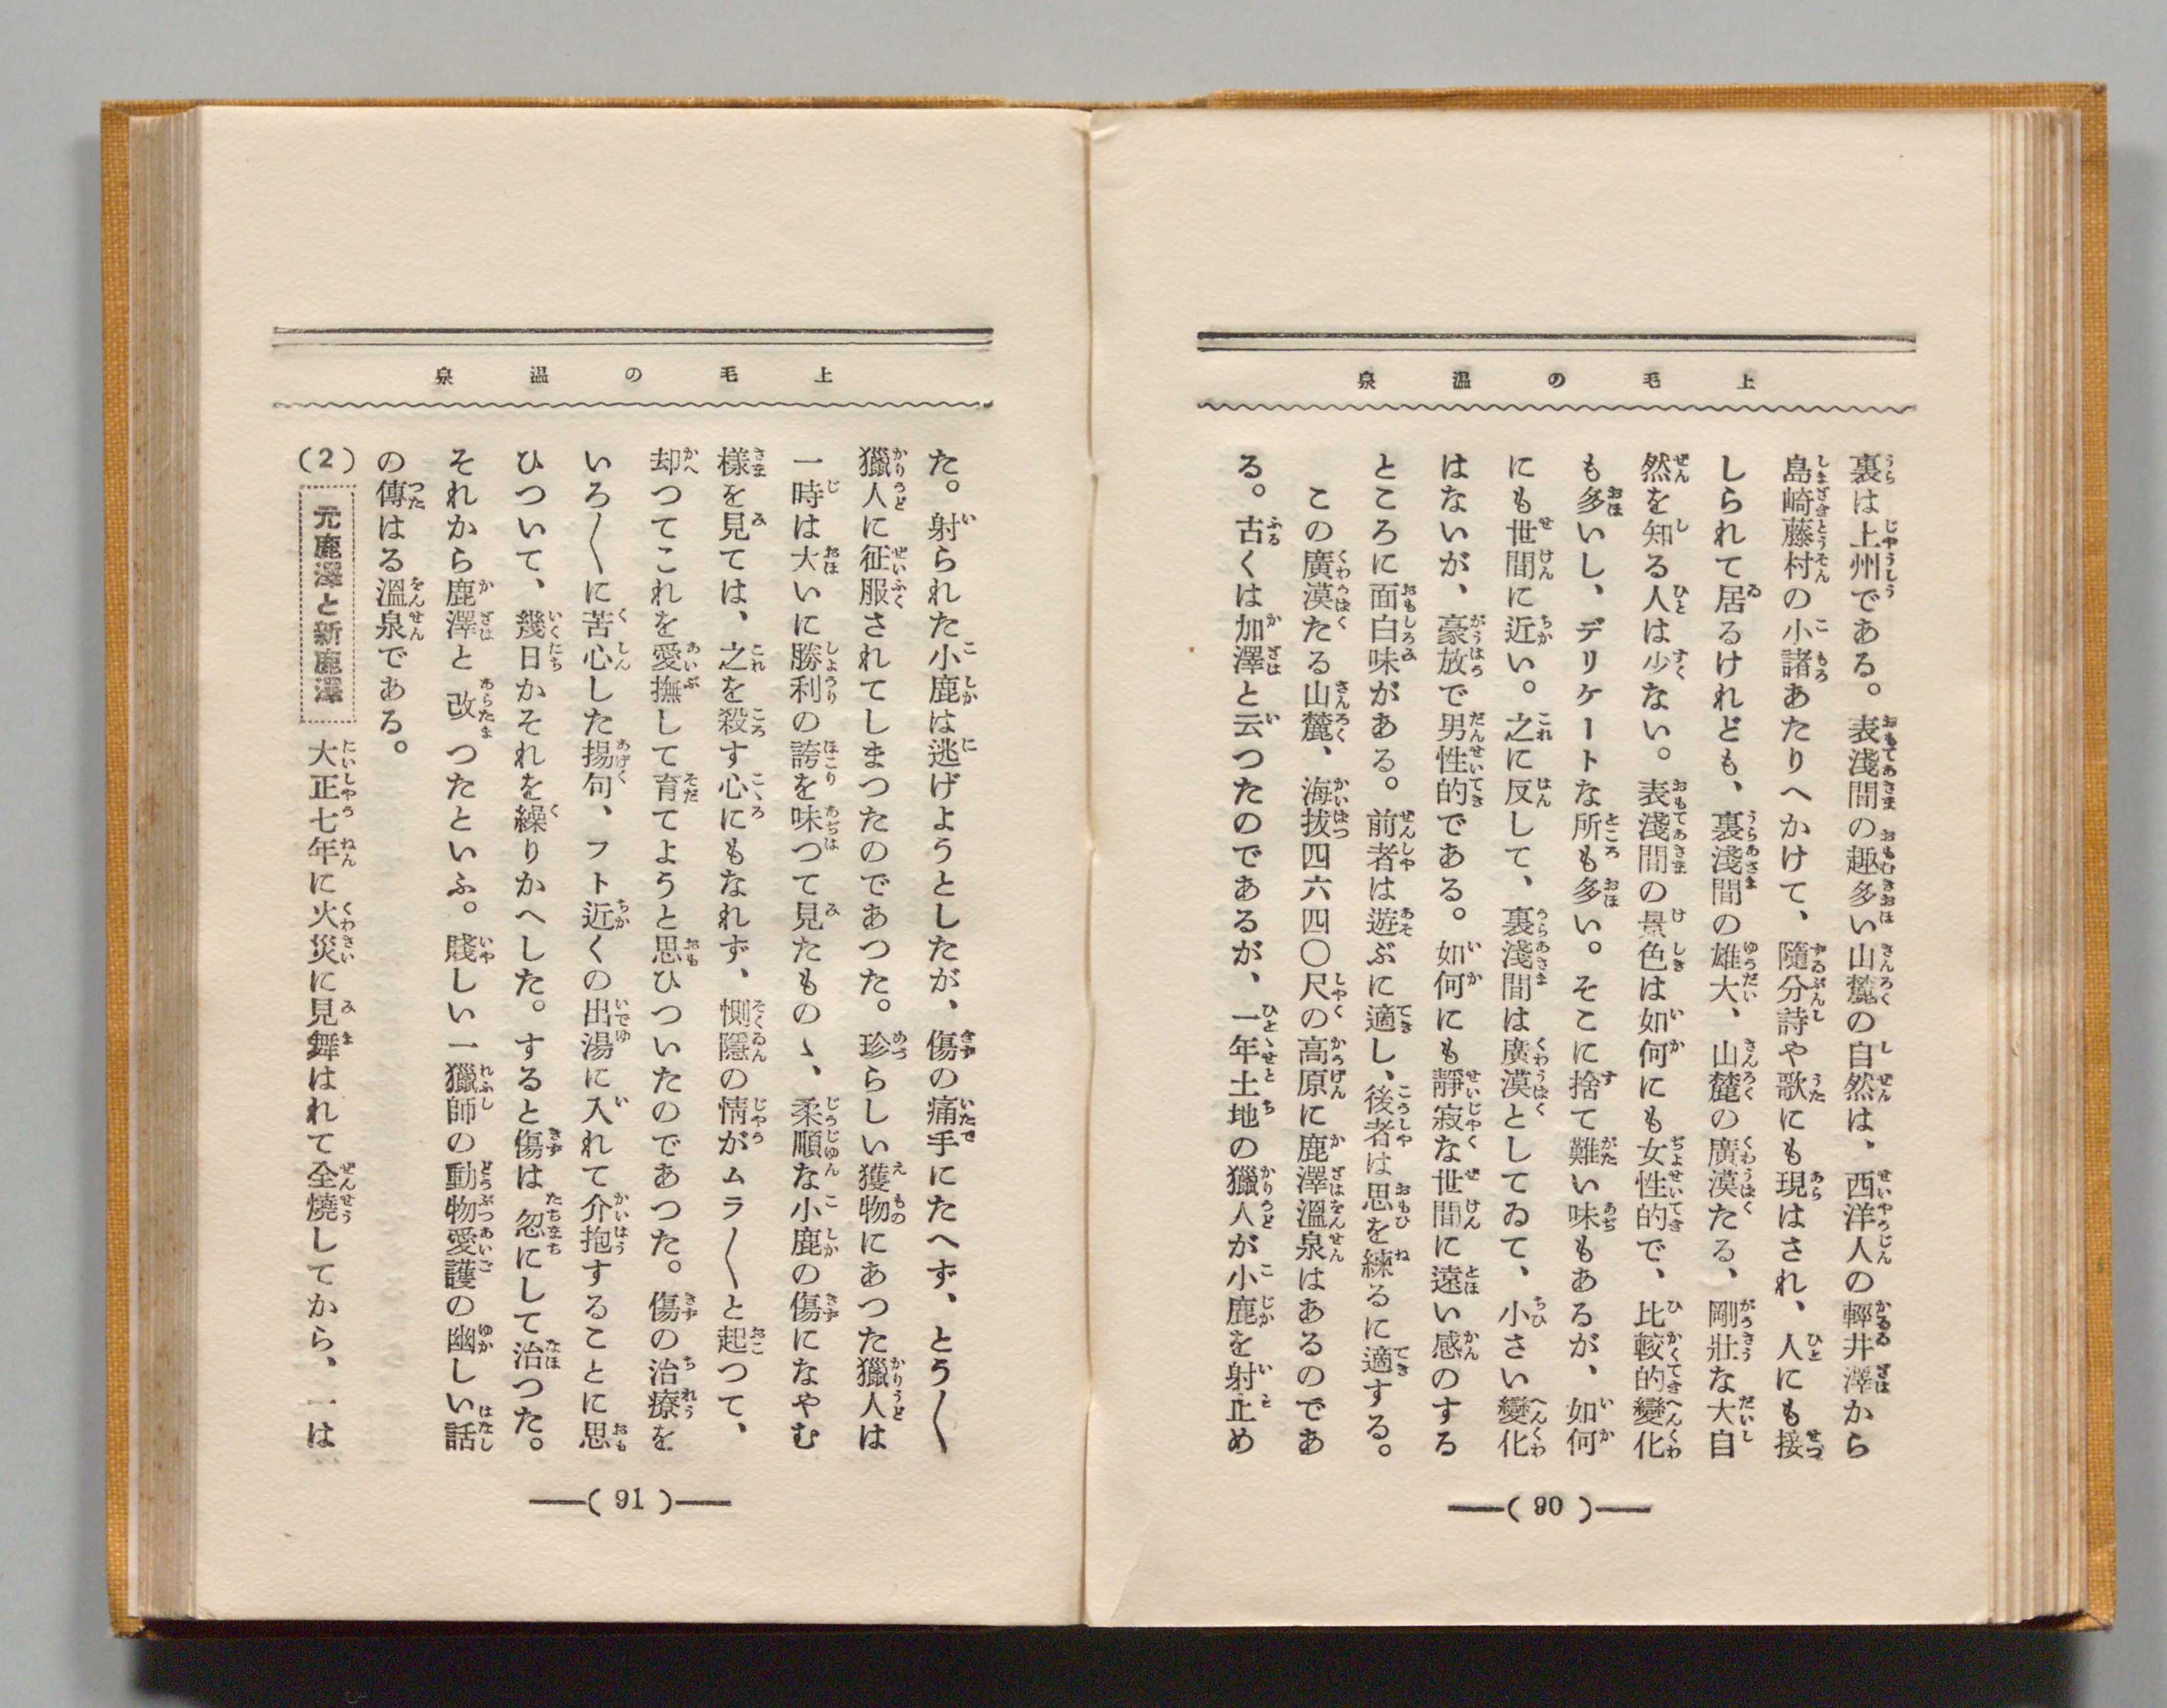 上毛の温泉
裏は上州である。表淺間の趣多い山麓の自然は、西洋人の輕井澤から
島崎藤村の小諸あたりへかけて、隨分詩や歌にも現はされ、人にも接
しられて居るけれども、裏淺間の雄大、山麓の廣漠たる、剛壯な大自
然を知る人は少ない。表淺間の景色は如何にも女性的で、比較的變化
も多いし、デリケートな所も多い。そこに捨て難い味もあるが、如何
にも世間に近い。之に反して、裏淺間は廣漠としてゐて、小さい變化
はないが、豪放で男性的である。如何にも靜寂な世間に遠い感のする
ところに面白味がある。前者は遊ぶに適し、後者は思を練るに適する。
この廣漠たる山麓、海拔四六四〇尺の高原に鹿澤溫泉はあるのであ
る。古くは加澤と云つたのであるが、一年土地の獵人が小鹿を射止め
—( 90 )—
上毛の温泉
た。射られた小鹿は逃げようとしたが、傷の痛手にたへず、とう〱
獵人に征服されてしまつたのであつた。珍らしい獲物にあつた獵人は
一時は大いに勝利の誇を味つて見たものゝ、柔順な小鹿の傷になやむ
樣を見ては、之を殺す心にもなれず、惻隱の情がムラ〱と起つて、
却つてこれを愛撫して育てようと思ひついたのであつた。傷の治療を
いろ〱に苦心した揚句、フト近くの出湯に入れて介抱することに思
ひついて、幾日かそれを繰りかへした。すると傷は忽にして治つた。
それから鹿澤と改つたといふ。賤しい一獵師の動物愛護の幽しい話
の傳はる溫泉である。
(2) 元鹿澤と新鹿澤 大正七年に火災に見舞はれて全燒してから、一は
—( 91 )—